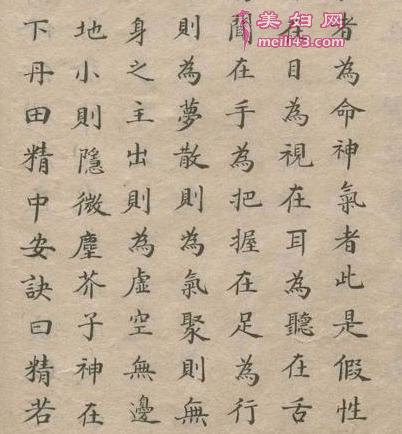 者為命神氣者此是假性
在目為視在耳為聽在舌
間在手為把握在足為行
則為夢散則為氣聚則無
身之主出則為虛空無邊
地小則隱微塵芥子神在
下丹田精中安訣曰精若
美妇网
meili43.com